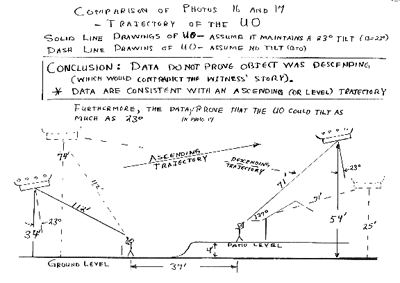 COMPARISON OF PHOTOS 16 AND 17
- TRAJECTORY OF THE UO
SOLID LINE DRAWINGS OF UO - ASSUME IT MAINTAINS A 23° TILT (B=23°)
DASH LINE DRAWINGS OF UO - ASSUME NO TILT (B=0)
CONCLUSION: DATA DO NOT PROVE OBJECT WAS DESCENDING
(WHICH WOULD CONTRADICT THE WITNESS' STORY).
* DATA ARE CONSISTENT WITH AN ASCENDING (OR LEVEL) TRAJECTORY
FURTHERMORE, THE DATA PROVE THAT THE UO COULD TILT AS
MUCH AS 23° IN PHOTO 17
74'
ASCENDING
TRAJECTORY
DESCENDING
TRAJECTORY
112'
71'
23°
71'
112'
23°
34'
37°
54'
25'
PATIO LEVEL
4'
GROUND LEVEL
37'